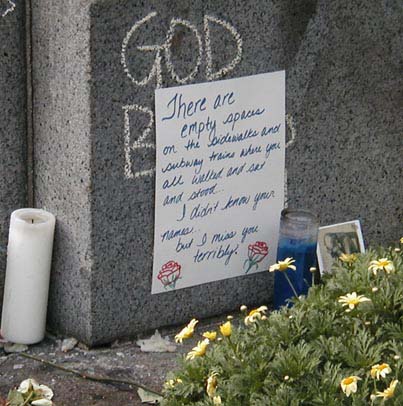 GOD
There are
empty spaces
on the sidewalks and
subway trains where you
all walked and sat
and stood...
I didn't know your
names...
but I miss you
terribly.